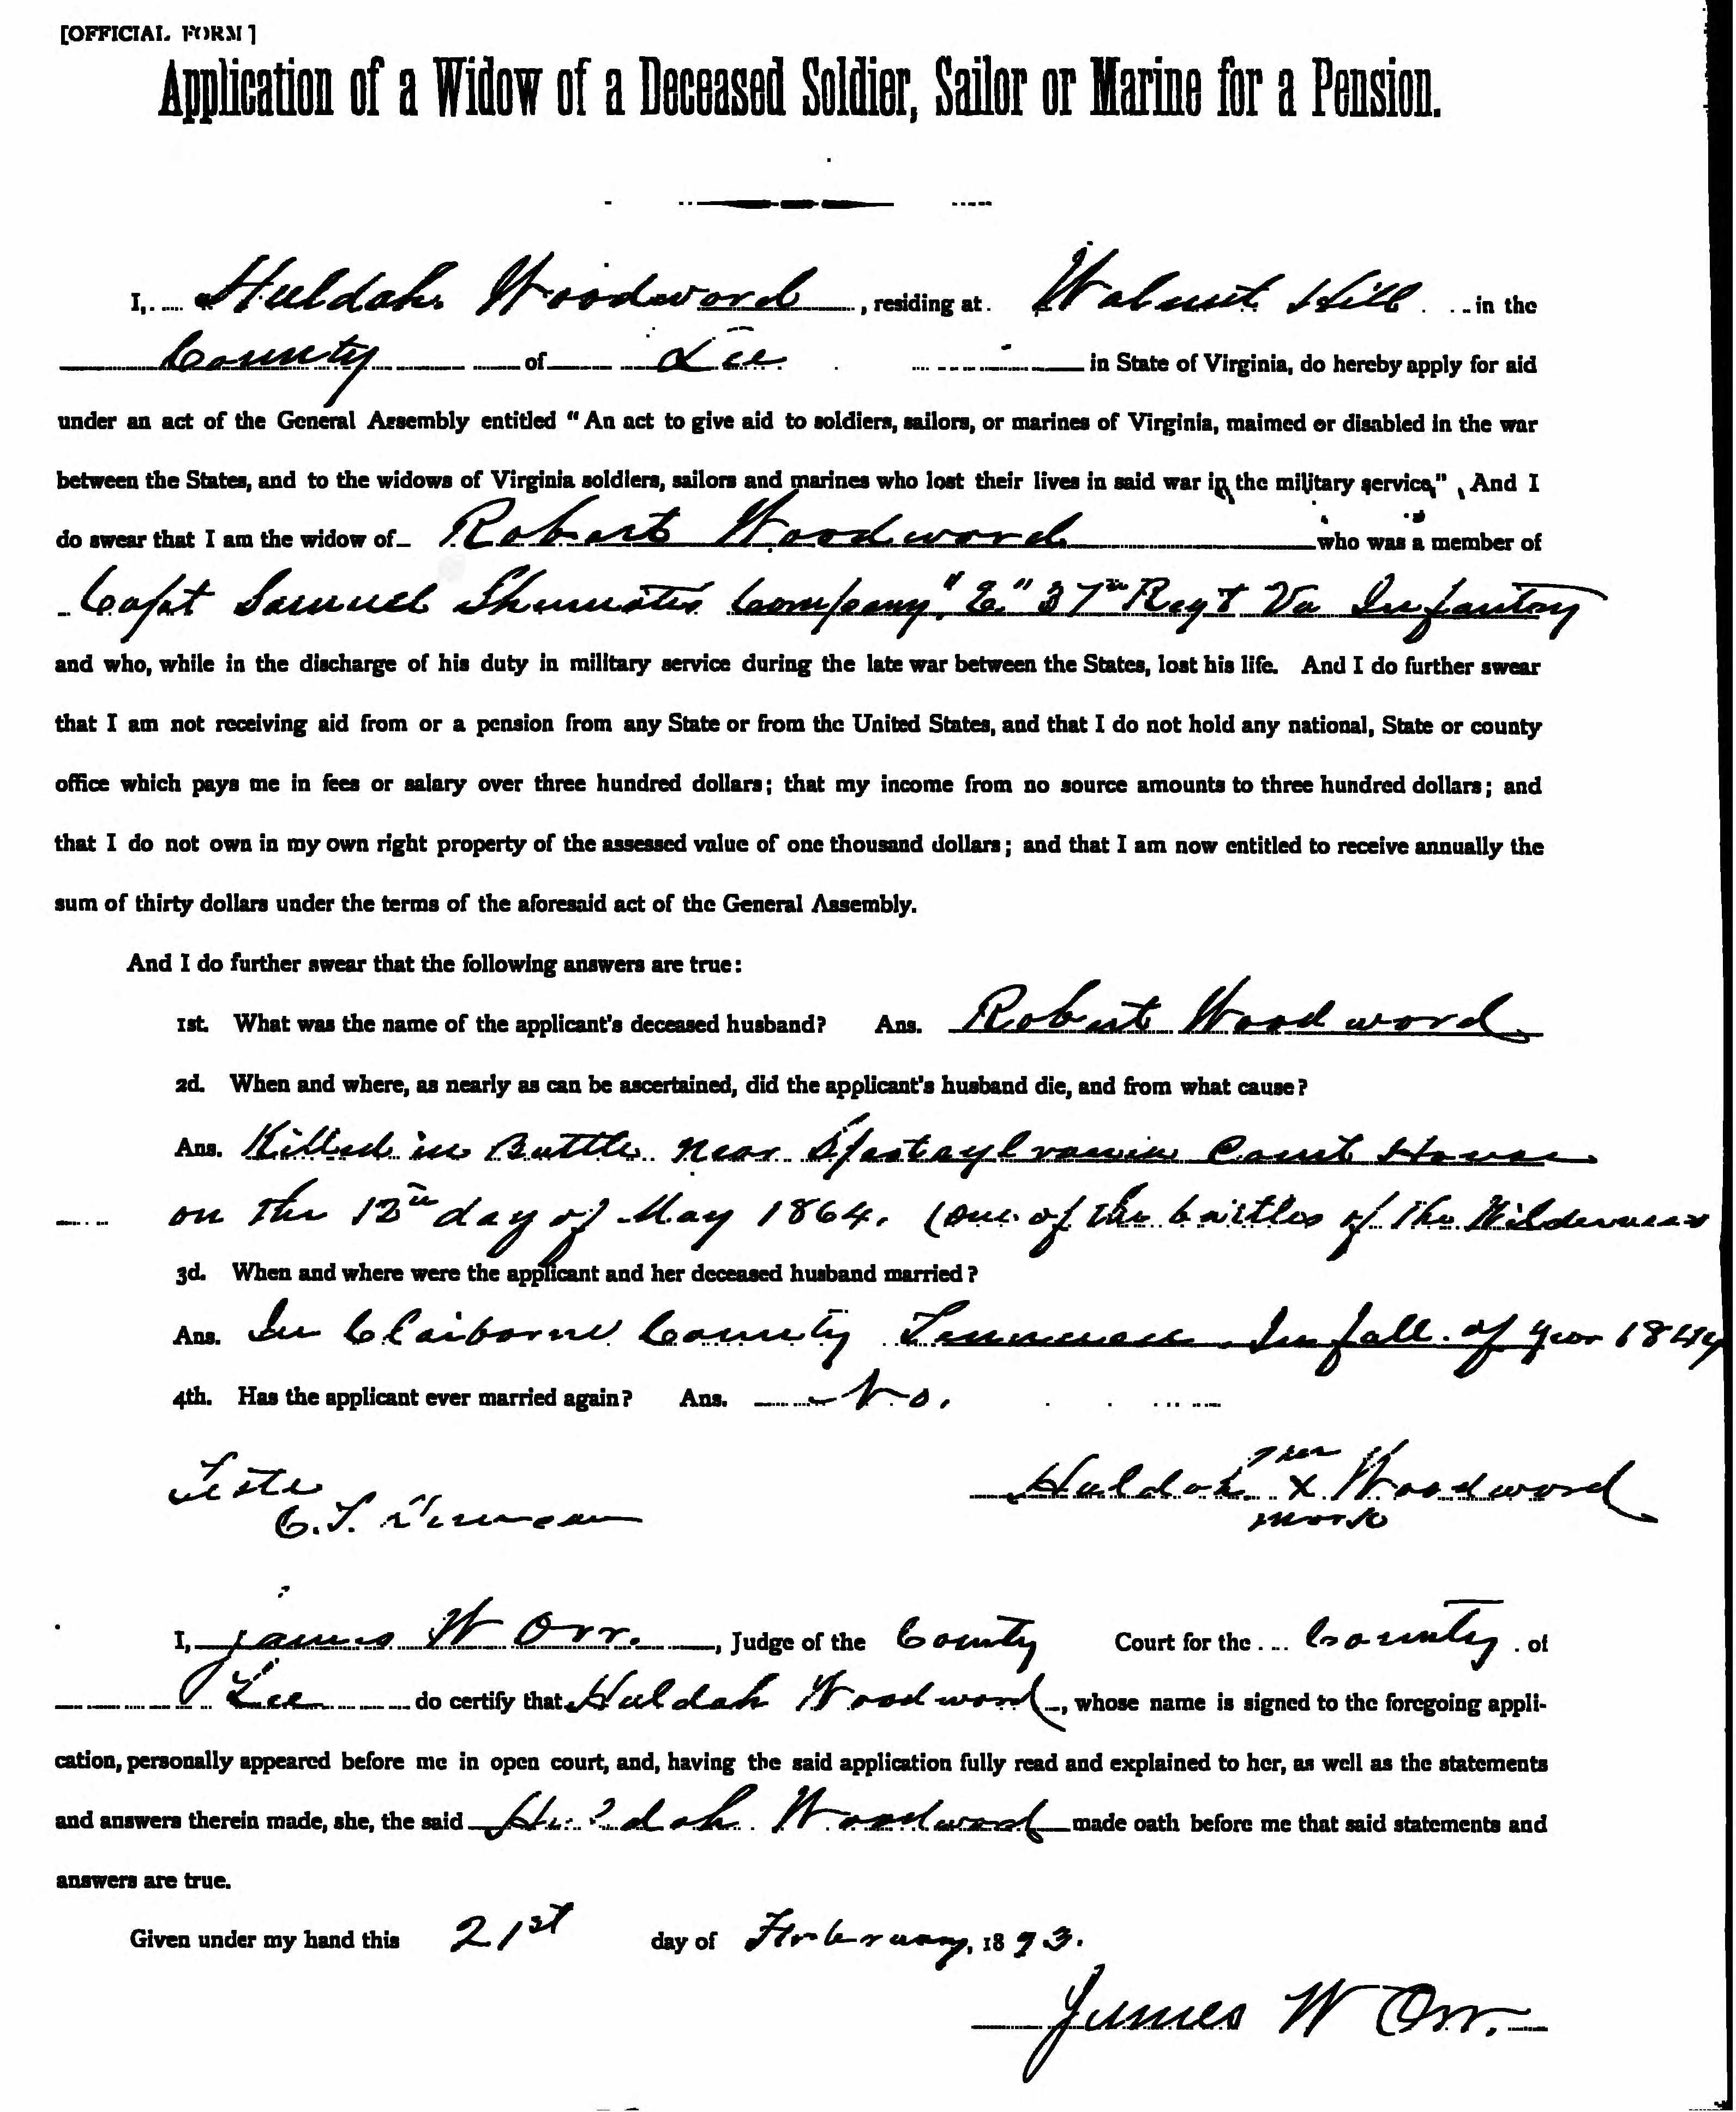 [OFFICIAL FORM]
Application of a Widow of a Deceased Soldier, Sailor or Marine for a Pension.
I, Huldah Woodward, residing at Walnut Hill in the
County of Lee in State of Virginia, do hereby apply for aid
under an act of the General Assembly entitled "An act to give aid to soldiers, sailors, or marines of Virginia, maimed or disabled in the war
between the States, and to the widows of Virginia soldiers, sailors and marines who lost their lives in said war in the military service," And I
do swear that I am the widow of Robert Woodward who was a member of
Capt Samuel Shumates Company "E" 37th Regt Va Infantry
and who, while in the discharge of his duty in military service during the late war between the States, lost his life. And I do further swear
that I am not receiving aid from or a pension from any State or from the United States, and that I do not hold any national, State or county
office which pays me in fees or salary over three hundred dollars; that my income from no source amounts to three hundred dollars; and
that I do not own in my own right property of the assessed value of one thousand dollars; and that I am now entitled to receive annually the
sum of thirty dollars under the terms of the aforesaid act of the General Assembly.
And I do further swear that the following answers are true:
1st. What was the name of the applicant's deceased husband? Ans. Robert Woodward
2d. When and where, as nearly as can be ascertained, did the applicant's husband die, and from what cause?
Ans. Killed in Battle near Spotsylvania Court House
on the 12th day of May 1864. (one of the battles of the Wilderness
3d. When and where were the applicant and her deceased husband married?
Ans. In Claiborne County Tennessee In fall of year 1844
4th. Has the applicant ever married again? Ans. No.
her
Teste Huldah X Woodward
C. T. mark
I, James W Orr, Judge of the County Court for the County of
Lee do certify that Huldah Woodward, whose name is signed to the foregoing appli-
cation, personally appeared before me in open court, and, having the said application fully read and explained to her, as well as the statements
and answers therein made, she, the said Huldah Woodward made oath before me that said statements and
answers are true.
Given under my hand this 21st day of February, 1893.
James W Orr.